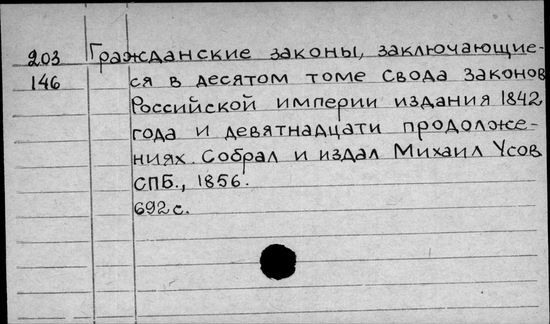 203 Гражданские законы, заключающие-
146 ся в десятом томе Свода законов
Российской империи издания 1842
года и девятнадцати продолже-
ниях. Собрал и издал Михаил Усов
СПБ., 1856.
692 с.